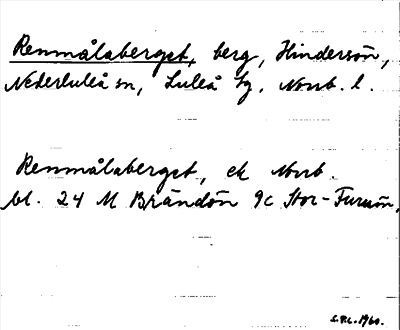 Renmålaberget, berg, Hindersön,
Nederluleå sn, Luleå tg, Norrb. l.
Renmålaberget, ek Norrb.
bl. 24 M Brändön 9c Stor-Furuön.
1960.